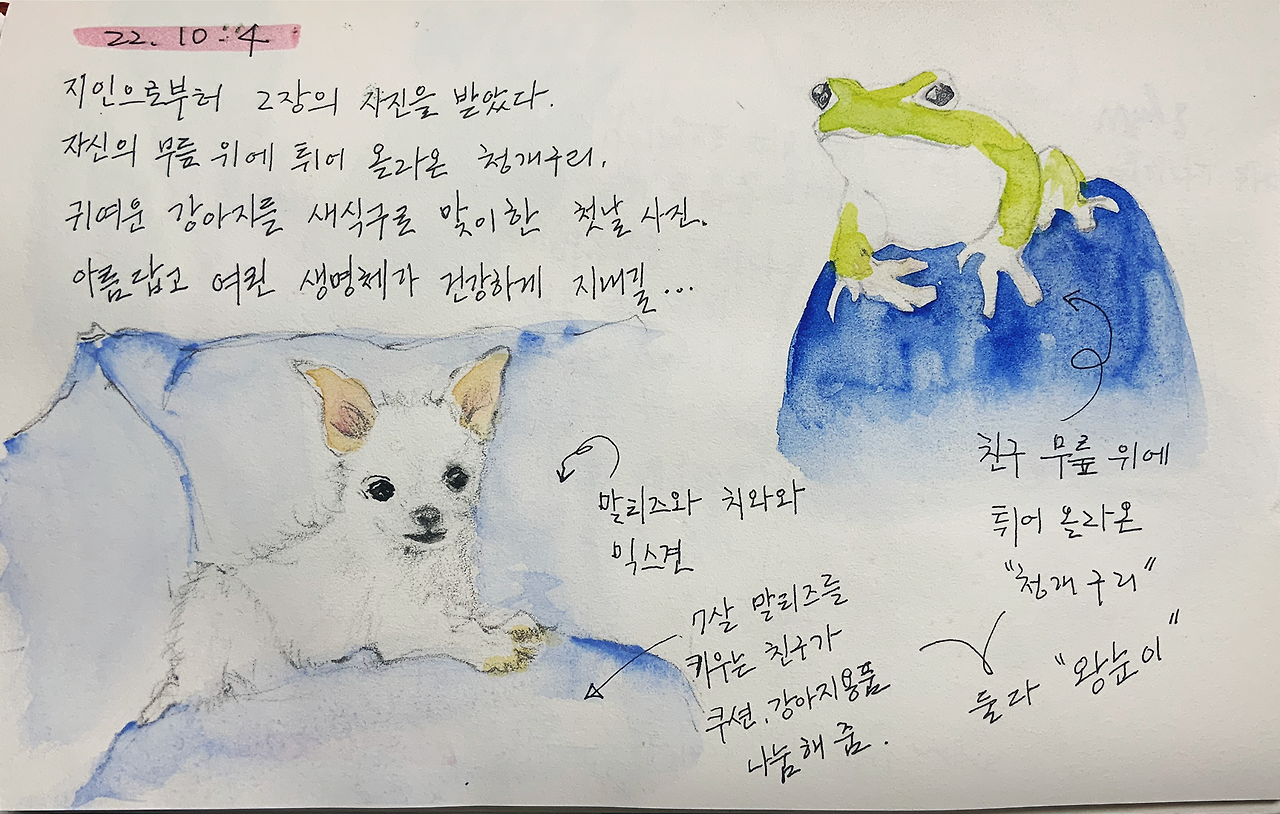 22. 10. 4
지인으로부터 2장의 사진을 받았다.
자신의 무릎 위에 튀어 올라온 청개구리.
귀여운 강아지를 새식구로 맞이한 첫날 사진.
아름답고 여린 생명체가 건강하게 지내길...
친구 무릎 위에
튀어 올라온
"청개구리"
둘다 "왕눈이"
말티즈와 치와와
믹스견
7살 말티즈를
키우는 친구가
쿠션, 강아지용품
나눔해 줌.